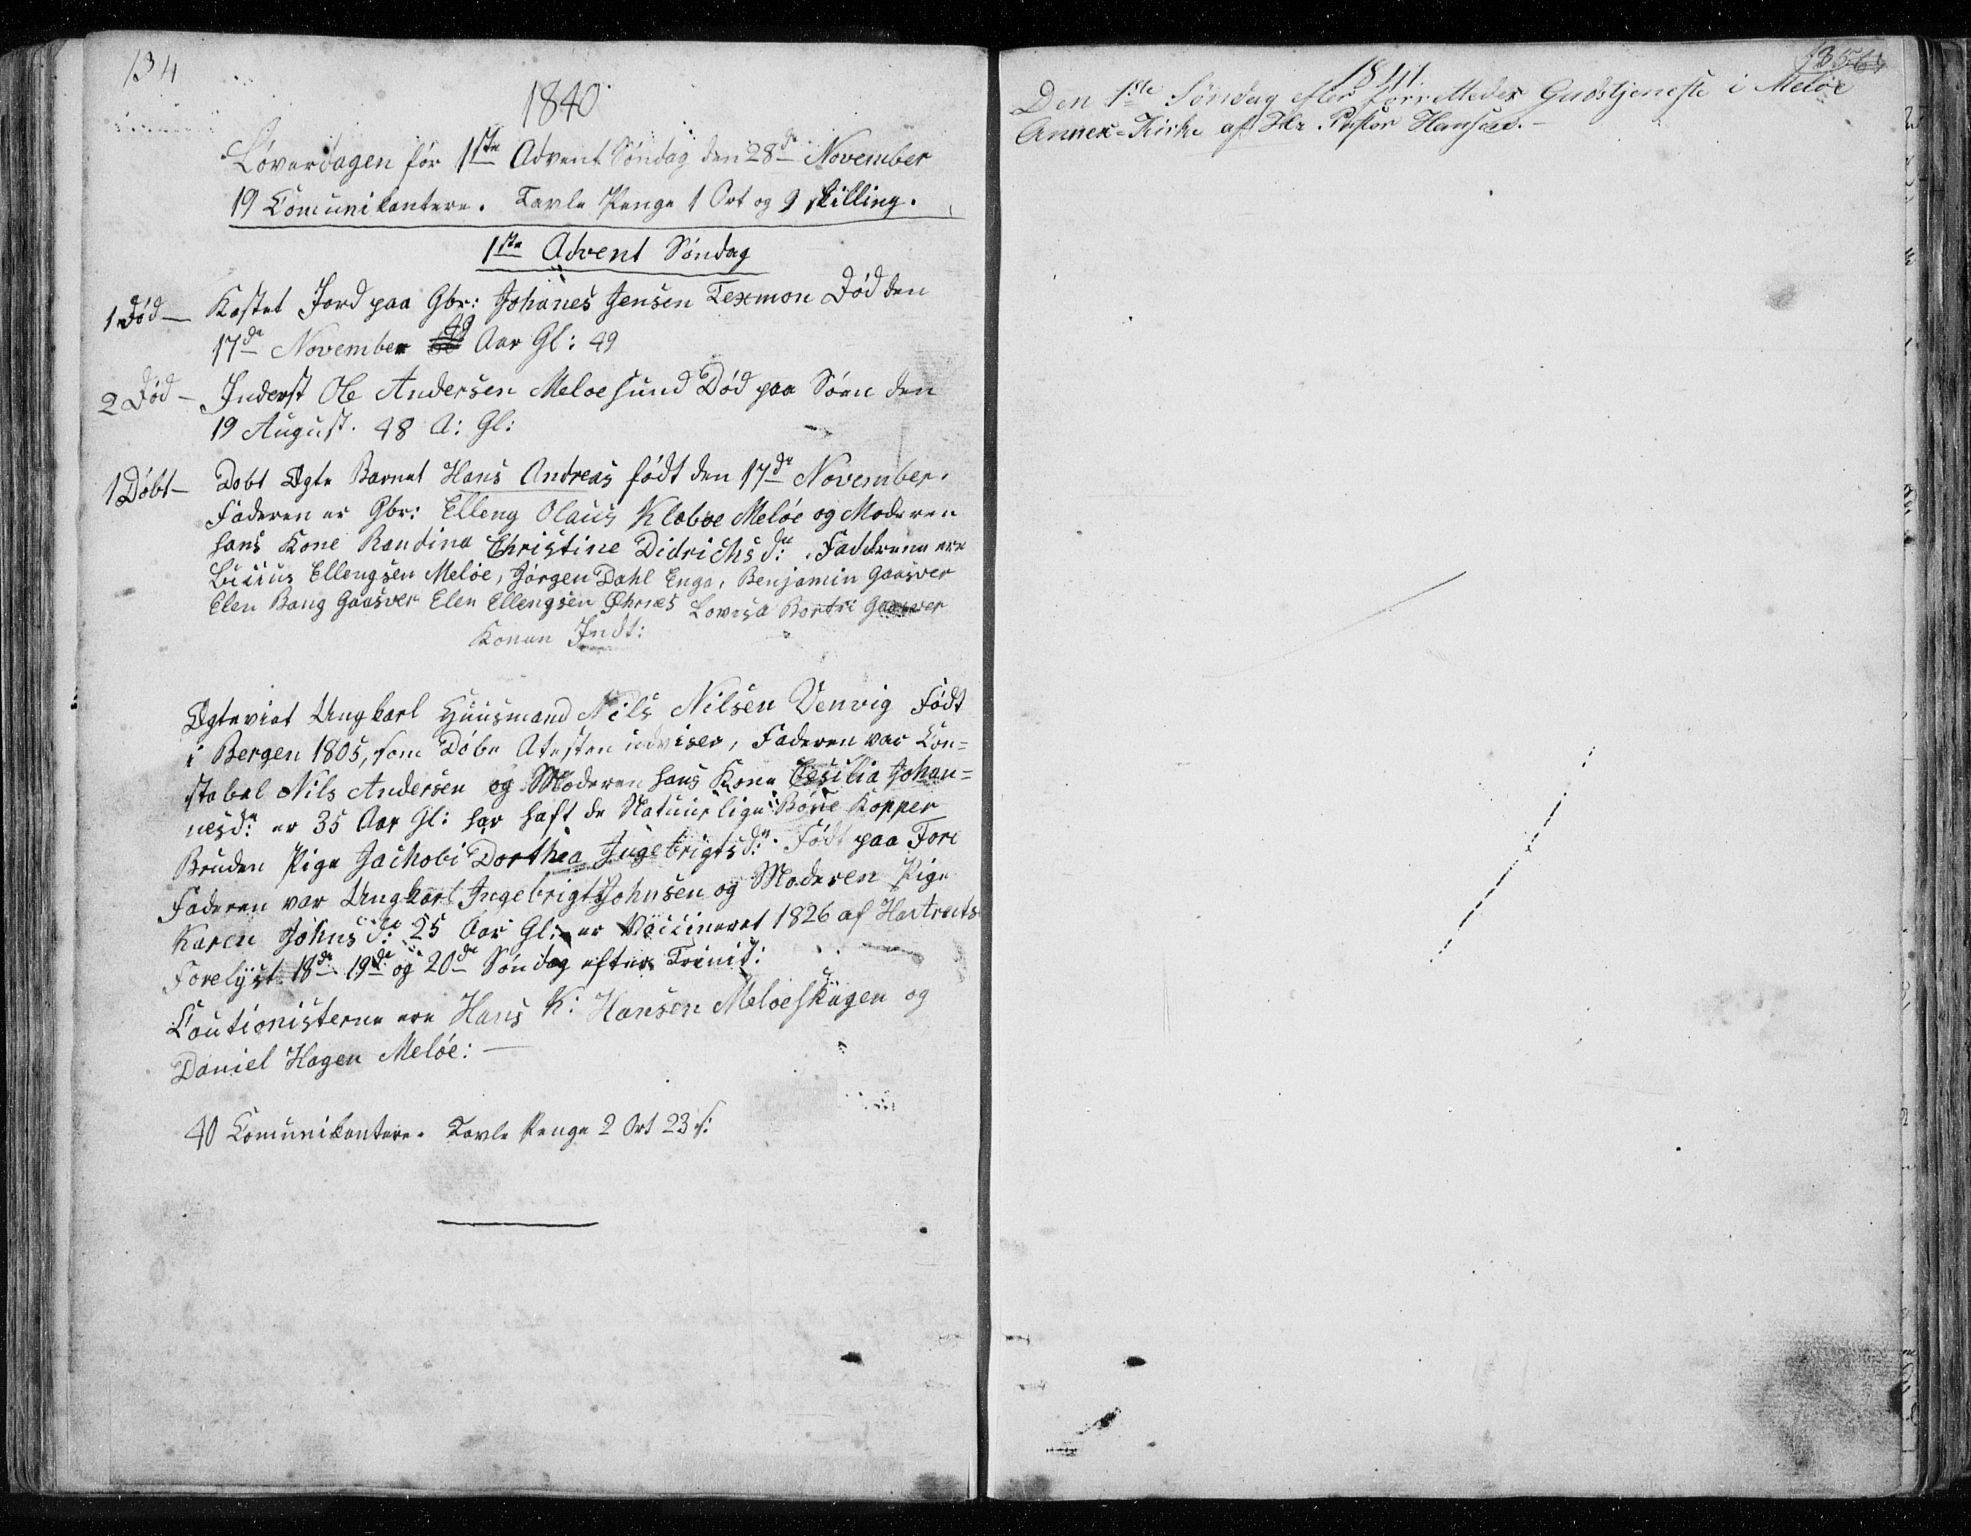 134
1840
Løverdagen før 1ste Advent Søndag den 28de November
19 Comunikantere. Tavle Penge 1 Ort og 9 skilling.
1ste Advent Søndag
1 Død — Kastet Jord paa Gbr: Johanes Jensen Texmon Død den
17de November Aar Gl: 49
2 Død — Inderst Ole Andersen Meloesund Død paa Søen den
19 August. 48 A: Gl:
1 Døbt — Døbt Ægte Barnet Hans Andreas født den 17de November.
Faderen er Gbr: Elleng Olaus Kloboe Meløe og Moderen
hans Kone Randina Christine Didrichsdn: Fadderene ere
Ellengsen Meløe, Jørgen Dahl Enga, Benjamin Gaasver
Elen Bang Gaasver Elen Ellengsen Øhrnes Lovisa Gaasver
Konen Indt:
Ægteviet Ungkarl Huusmand Nils Nilsen Venvig Født
i Bergen 1805, som Døbe Atesten udviser, Faderen var Con=
stabel Nils Andersen og Moderen hans Kone Cesilia Johan=
nesdn: er 35 Aar Gl: har haft de Natuurlige Børne Kopper
Bruden Pige Jachobi Dorthea Ingebrigtsdn: Født paa Fore
Faderen var Ungkarl Ingebrigt Johnsen og Moderen Pige
Karen Johnsdn: 25 Aar Gl: er Vaccineret 1826 af
Forelyst 18de 19de og 20de Søndag efter Trinit:
Cautionisterne ere Hans K: Hansen Meloeskagen og
Daniel Hagen Meløe: —
40 Comunikantere. Tavle Penge 2 Ort 23 s:
1841.
Den 1ste Søndag efter Gudstjeneste i Meløe
Annex-Kirke af Hr. Pastor Hansen. —